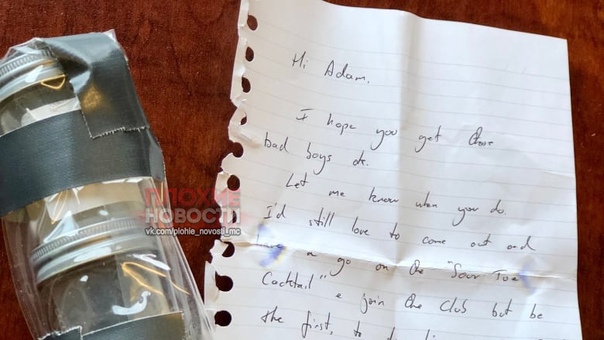 Hi Adam,
I hope you get these
bad boys ok.
Let me know when you do.
I'd still love to come out and
have a go on the "Sour Toe
Cocktail" & join the club but be
the first, to
ПЛОХИЕ
НОВОСТИ
vk.com/plohie_novosti_mc